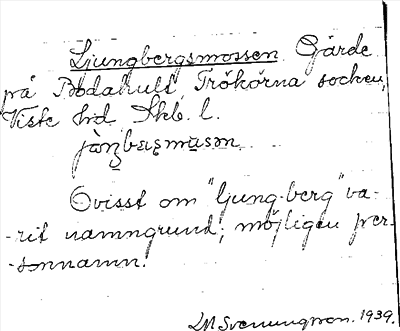 Ljungbergsmossen Gärde
på Bodahult Trökörna socken,
Viste hd Skb. l.
Ovisst om "ljung-berg" va-
-rit namngrund; möjligen per-
-sonnamn.
LM Svenungsson. 1939.